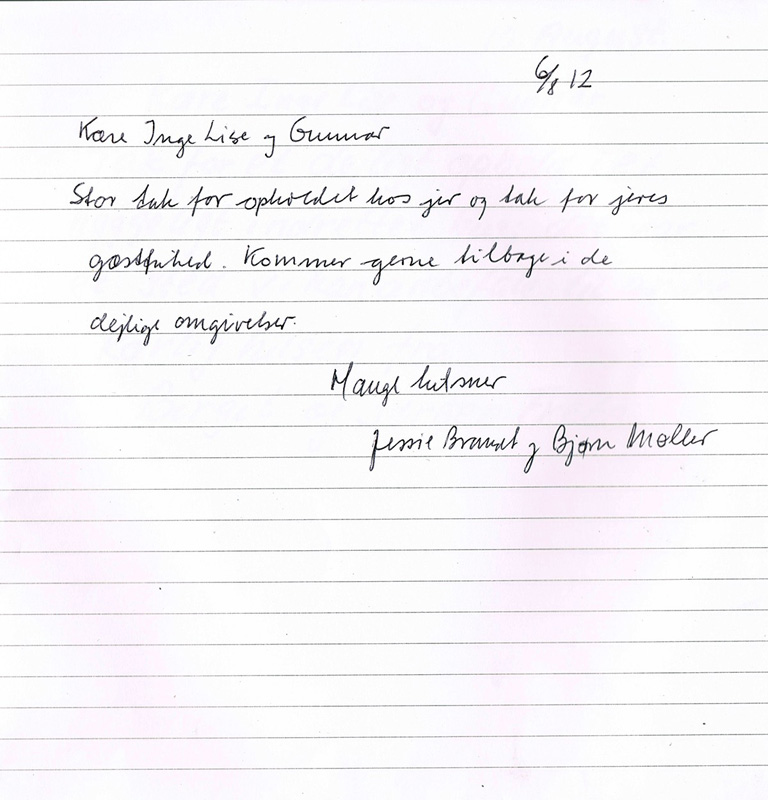 6/8 12
Kære Inge Lise og Gunnar
Stor tak for opholdet hos jer og tak for jeres
gæstfrihed. Kommer gerne tilbage i de
dejlige omgivelser.
Mange hilsner
Jessie Brandt og Bjørn Møller